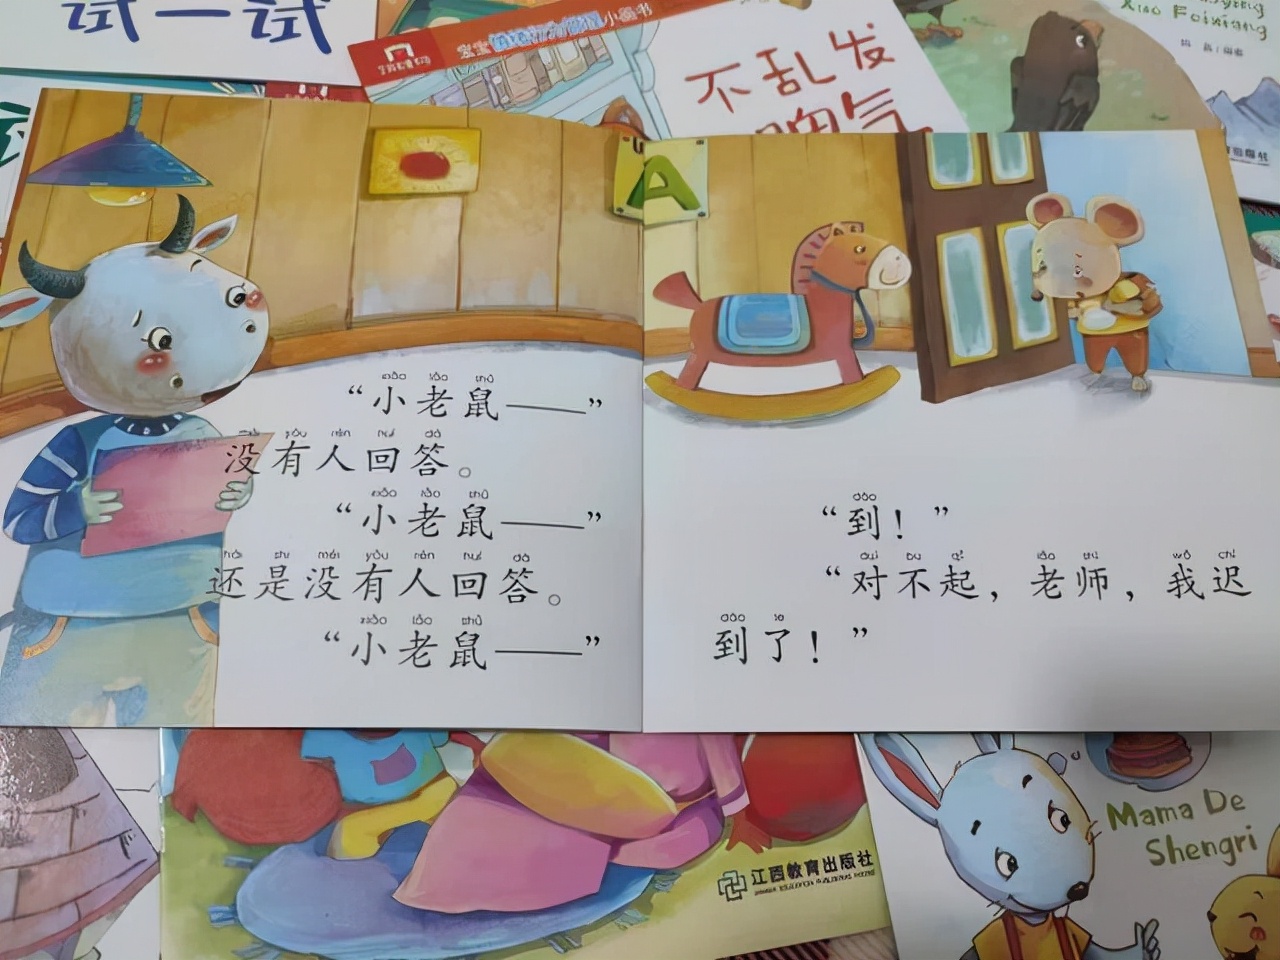 试一试
不乱发
脾气
Xiao Foxiang
A
xiǎo lǎo shǔ
“小老鼠——”
méi yǒu rén huí dá
没有人回答。
xiǎo lǎo shǔ
“小老鼠——”
hái shi méi yǒu rén huí dá
还是没有人回答。
xiǎo lǎo shǔ
“小老鼠——”
dào
“到！”
duì bu qǐ lǎo shī wǒ chí
“对不起，老师，我迟
dào le
到了！”
江西教育出版社
Mama De
Shengri